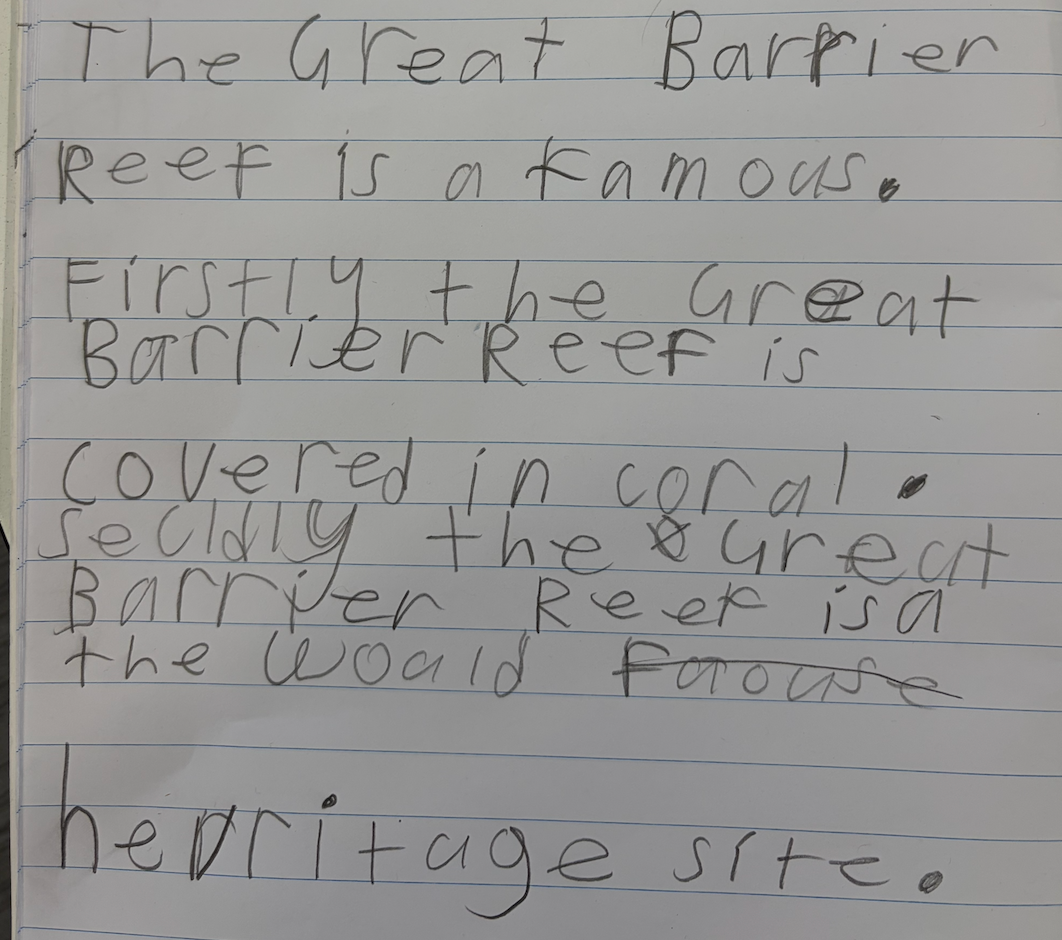 The Great Barrier
Reef is a famous.
Firstly the Great
Barrier Reef is
covered in coral.
Secldly the Great
Barrier Reef is a
the woauld faouse
herritage site.